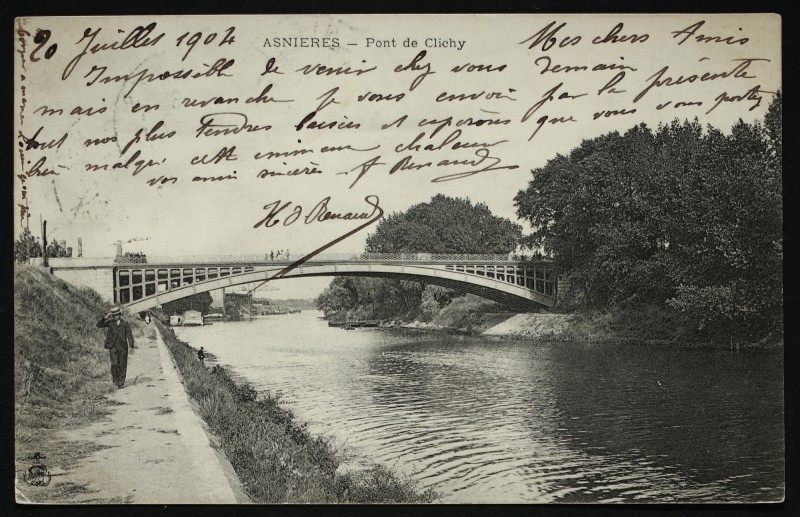 ASNIERES — Pont de Clichy
20 Juillet 1904 Mes chers Amis
Impossible de venir chez vous demain
mais en revanche je vous envoie par la présente
tout nos plus tendres baisées et espérons que vous vous portez
bien malgré cette chaleur
vos amis sincères Renaud
H Renaud